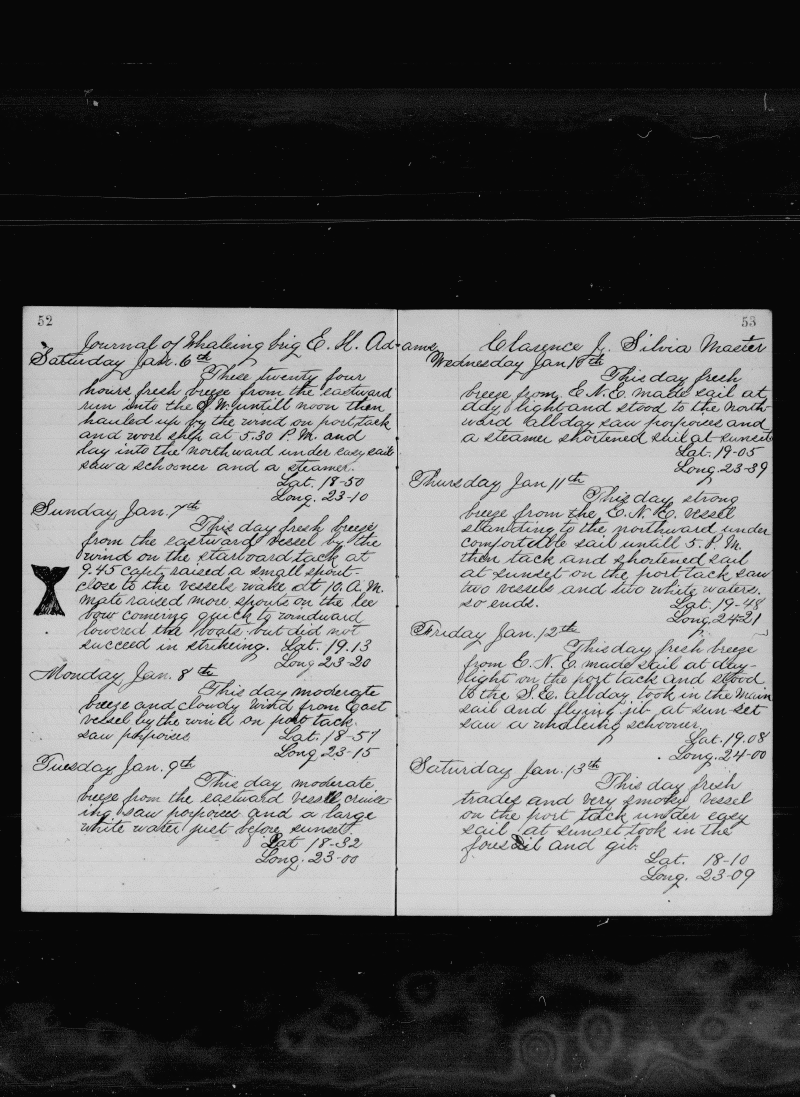 52
Journal of Whaleing brig E. H. Adams
Saturday Jan. 6th
These twenty four
hours fresh breeze from the eastward
run into the S.W. untill noon then
hauled up by the wind on port tack
and wore ship at 5.30 P.M. and
lay into the northward under easy sail
saw a schooner and a steamer.
Lat. 18-50
Long. 23-10
Sunday Jan. 7th
This day fresh breeze
from the eastward vessel by the
wind on the starboard tack at
9.45 capt. raised a small spout
close to the vessels wake at 10 A.M.
mate raised more spouts on the lee
bow comering quick to windward
lowered the boats but did not
succeed in strikeing. Lat. 19.13
Long 23-20
Monday Jan. 8th
This day moderate
breeze and cloudy wind from East
vessel by the wind on port tack.
saw porpoises Lat. 18-57
Long. 23-15
Tuesday Jan. 9th
This day moderate
breeze from the eastward vessel cruise-
ing saw porpoises and a large
white water just before sunset.
Lat 18-32
Long. 23-00
53
Clarence J. Silvia Master
Wednesday Jan 10th
This day fresh
breeze from E.N.E. made sail at
day light and stood to the north-
ward all day saw porpoises and
a steamer shortened sail at sunset
Lat. 19-05
Long. 23-39
Thursday Jan 11th
This day strong
breeze from the E.N.E. vessel
standing to the northward under
comfortable sail untill 5. P.M.
then tack and shortened sail
at sunset on the port tack saw
two vessels and two white waters.
so ends. Lat. 19-48
Long. 24-21
Friday Jan. 12th
This day fresh breeze
from E.N.E. made sail at day-
light on the port tack and stood
to the S.E. all day took in the main
sail and flying jib at sun-set
saw a whaleing schooner
Lat. 19.08
Long. 24-00
Saturday Jan. 13th
This day fresh
trades and very smoky vessel
on the port tack under easy
sail at sunset took in the
foresail and gib.
Lat. 18-10
Long. 23-09